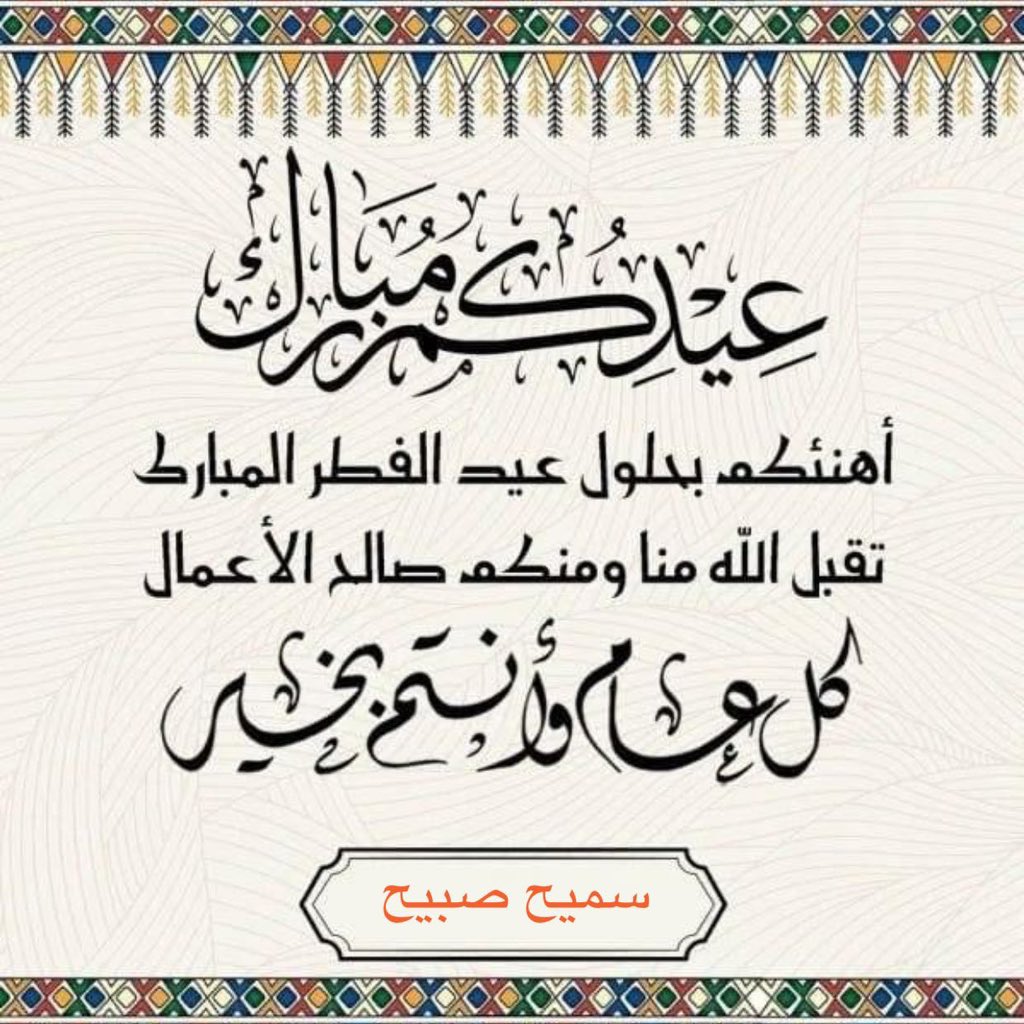 عيدكم مبارك
أهنئكم بحلول عيد الفطر المبارك
تقبل الله منا ومنكم صالح الأعمال
كل عام وأنتم بخير
سميح صبيح